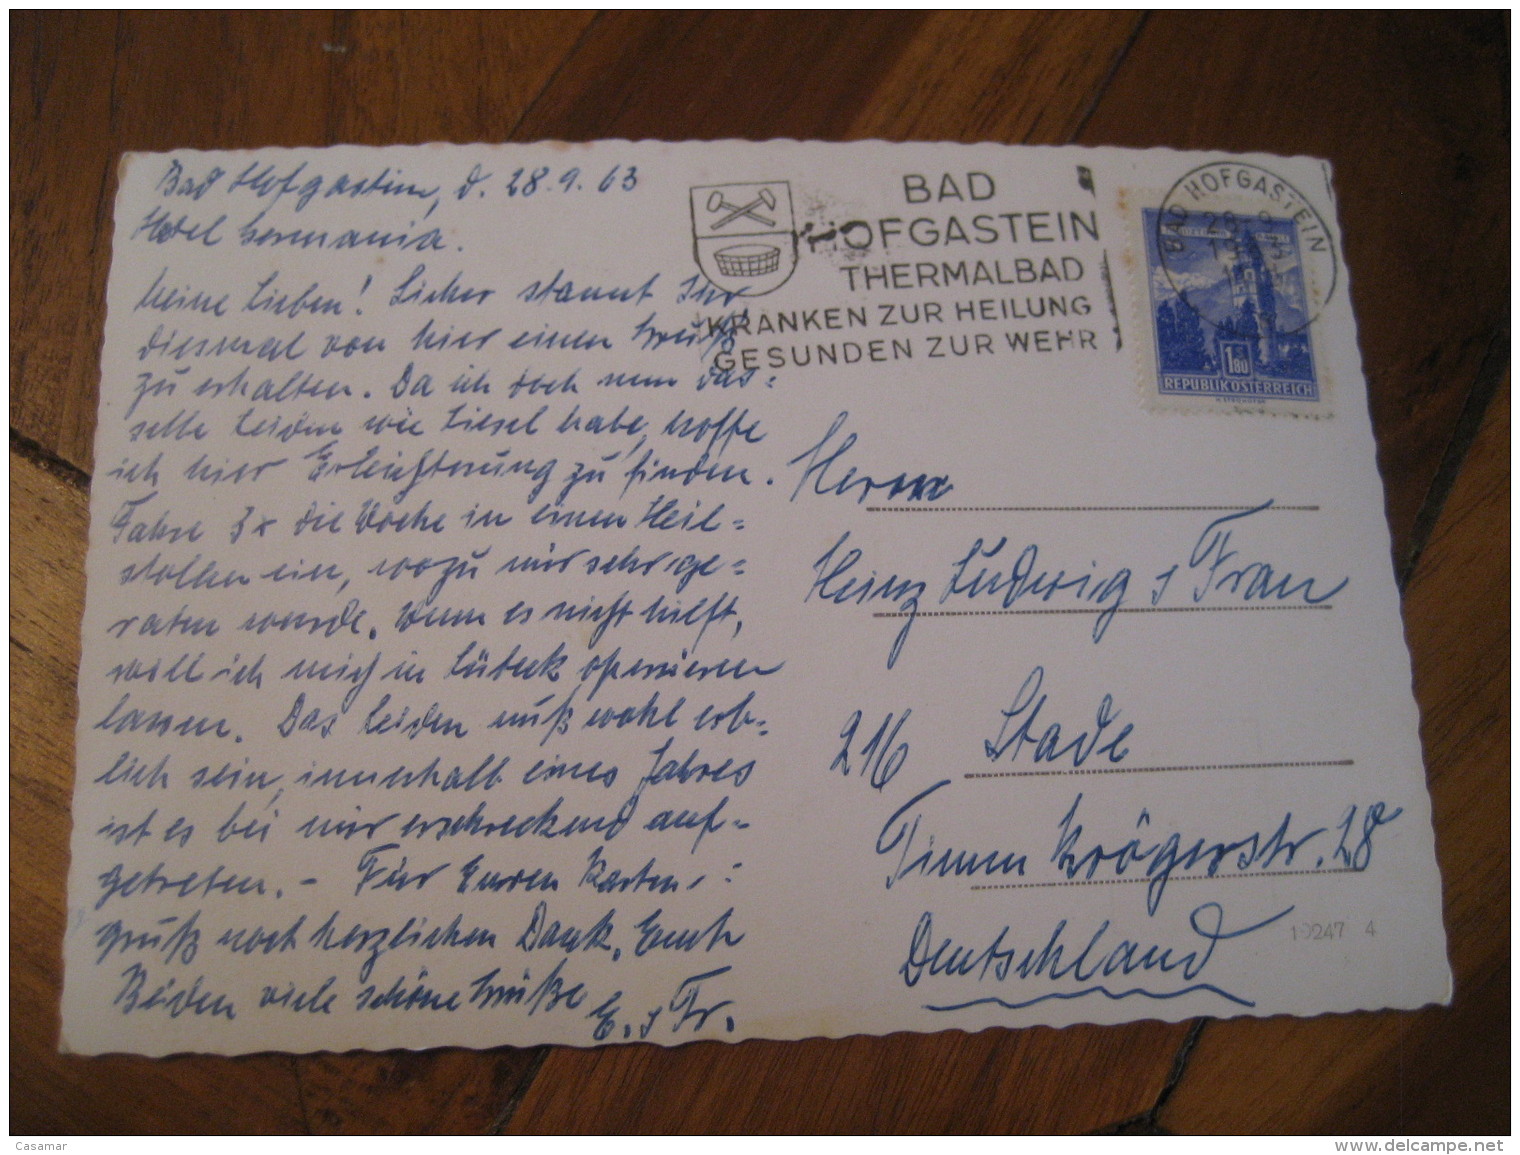 Bad Hofgastein, d. 28.9.63
Hotel Germania.
Meine Lieben! Sicher staunt Ihr
diesmal von hier einen Gruß
zu erhalten. Da ich doch nun das=
selbe Leiden wie Liesel habe, hoffe
ich hier Erleichterung zu finden.
Fahre 3x die Woche in einen Heil=
stollen ein, wozu mir sehr ge=
raten wurde. Wenn es nicht hilft,
will ich mich in Lübeck operieren
lassen. Das Leiden muß wohl erb=
lich sein, innerhalb eines Jahres
ist es bei mir erschreckend auf=
getreten. – Für Euren Karten=
gruß noch herzlichen Dank. Euch
Beiden viele schöne Grüße
E. u Fr.
BAD
HOFGASTEIN
THERMALBAD
KRANKEN ZUR HEILUNG
GESUNDEN ZUR WEHR
BAD HOFGASTEIN
1.80
REPUBLIK ÖSTERREICH
Herrn
Heinz Ludwig u Frau
216 Stade
Timm Krögerstr. 28
Deutschland
10247 4
Casamar
www.delcampe.net